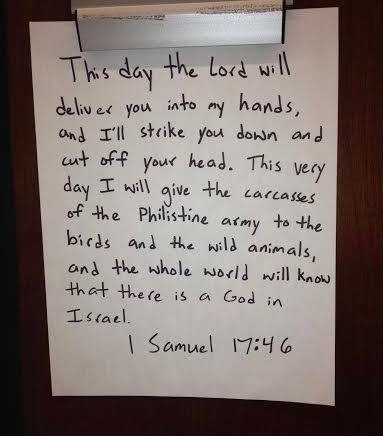 This day the Lord will
deliver you into my hands,
and I'll strike you down and
cut off your head. This very
day I will give the carcasses
of the Philistine army to the
birds and the wild animals,
and the whole world will know
that there is a God in
Israel.
1 Samuel 17:46